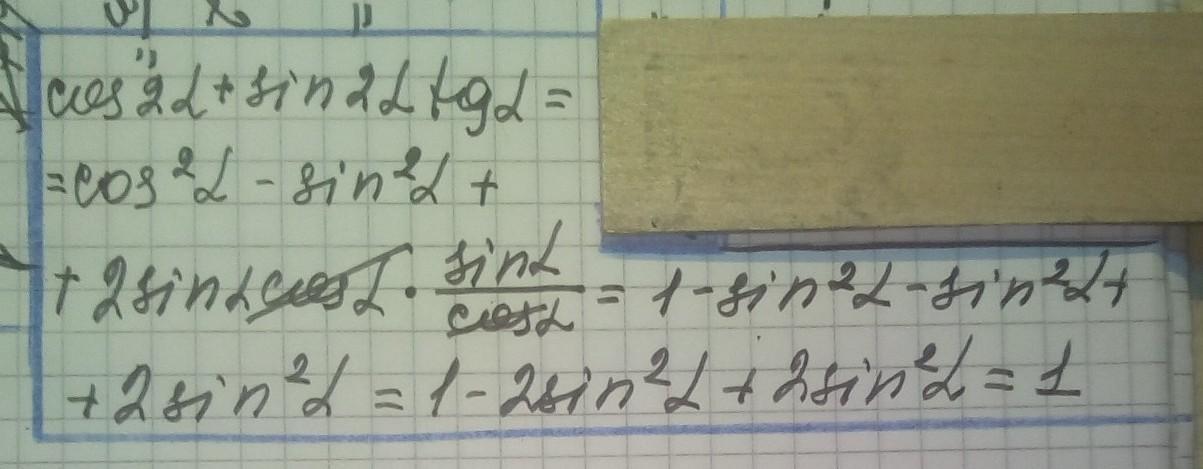 cos 2α + sin 2α tg α =
= cos²α - sin²α +
+ 2 sin α cos α · sin α / cos α = 1 - sin²α - sin²α +
+ 2 sin²α = 1 - 2 sin²α + 2 sin²α = 1